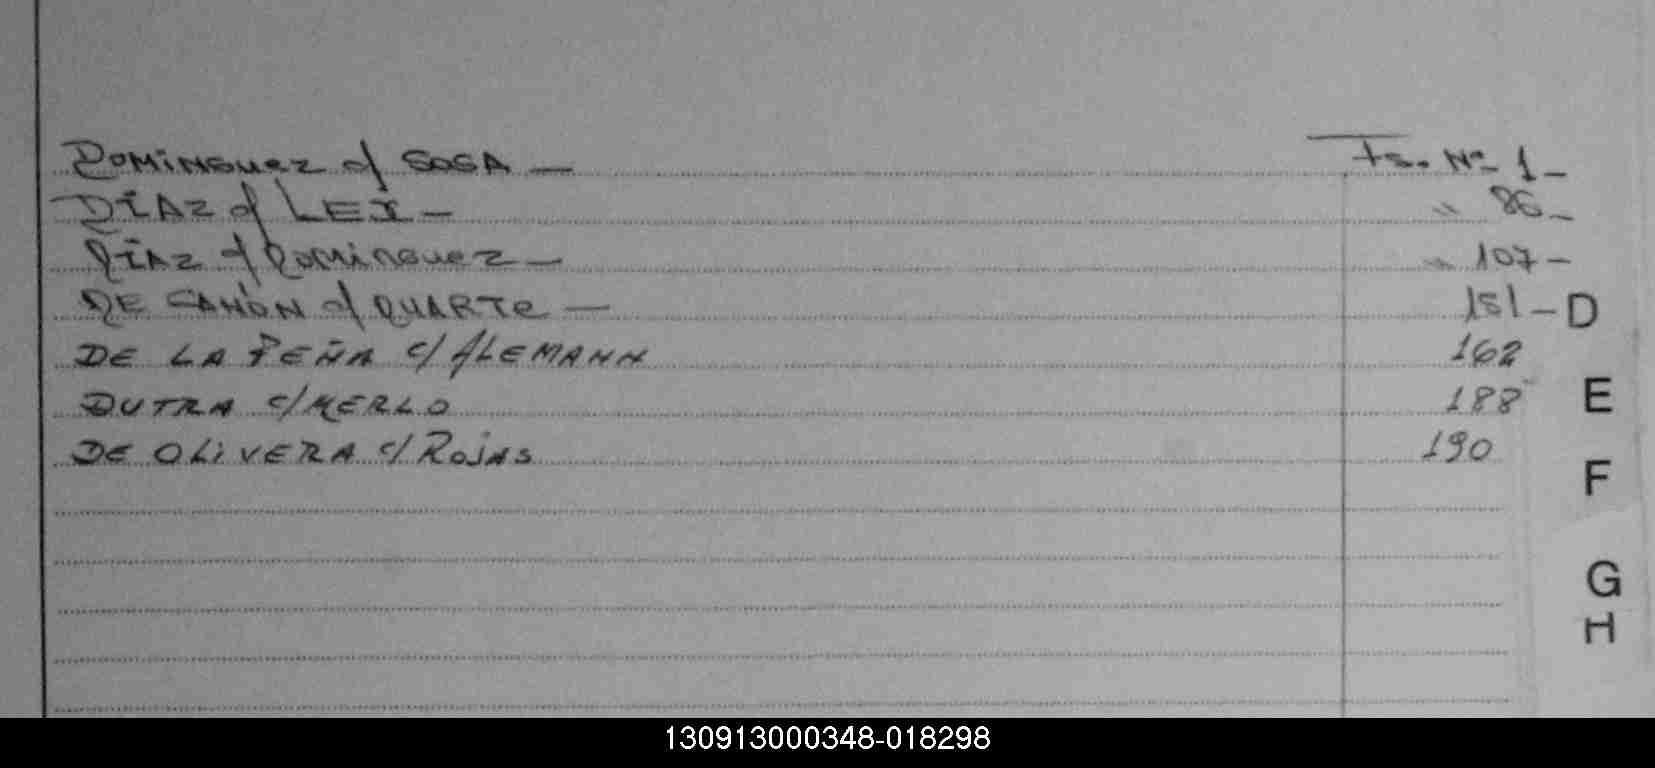 DOMINGUEZ c/ SOSA — Fs. Nº 1 —
DÍAZ c/ LEI — " 86 —
DÍAZ c/ DOMINGUEZ — " 107 —
DE CAÑON c/ DUARTE — 151 — D
DE LA PEÑA c/ ALEMANN 162
DUTRA c/ MERLO 188 E
DE OLIVERA c/ ROJAS 190
F
G
H
130913000348-018298